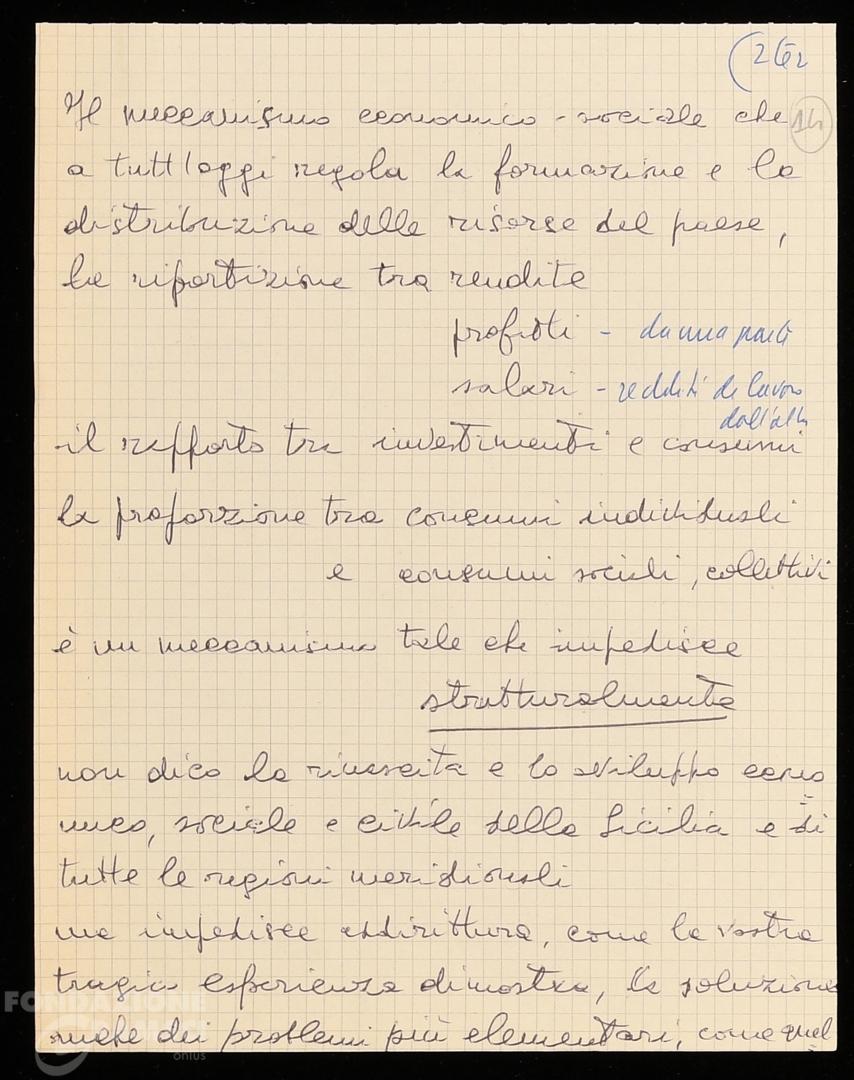 (2 ter
14
Il meccanismo economico-sociale che
a tutt'oggi regola la formazione e la
distribuzione delle risorse del paese,
la ripartizione tra rendite
profitti - da una parte
salari - redditi di lavoro
dall'altra
il rapporto tra investimenti e consumi
la proporzione tra consumi individuali
e consumi sociali, collettivi
è un meccanismo tale che impedisce
strutturalmente
non dico la rinascita e lo sviluppo econo
mico, sociale e civile della Sicilia e di
tutte le regioni meridionali
ma impedisce addirittura, come la vostra
tragica esperienza dimostra, la soluzione
anche dei problemi più elementari, come quel
FONDAZIONE
onlus